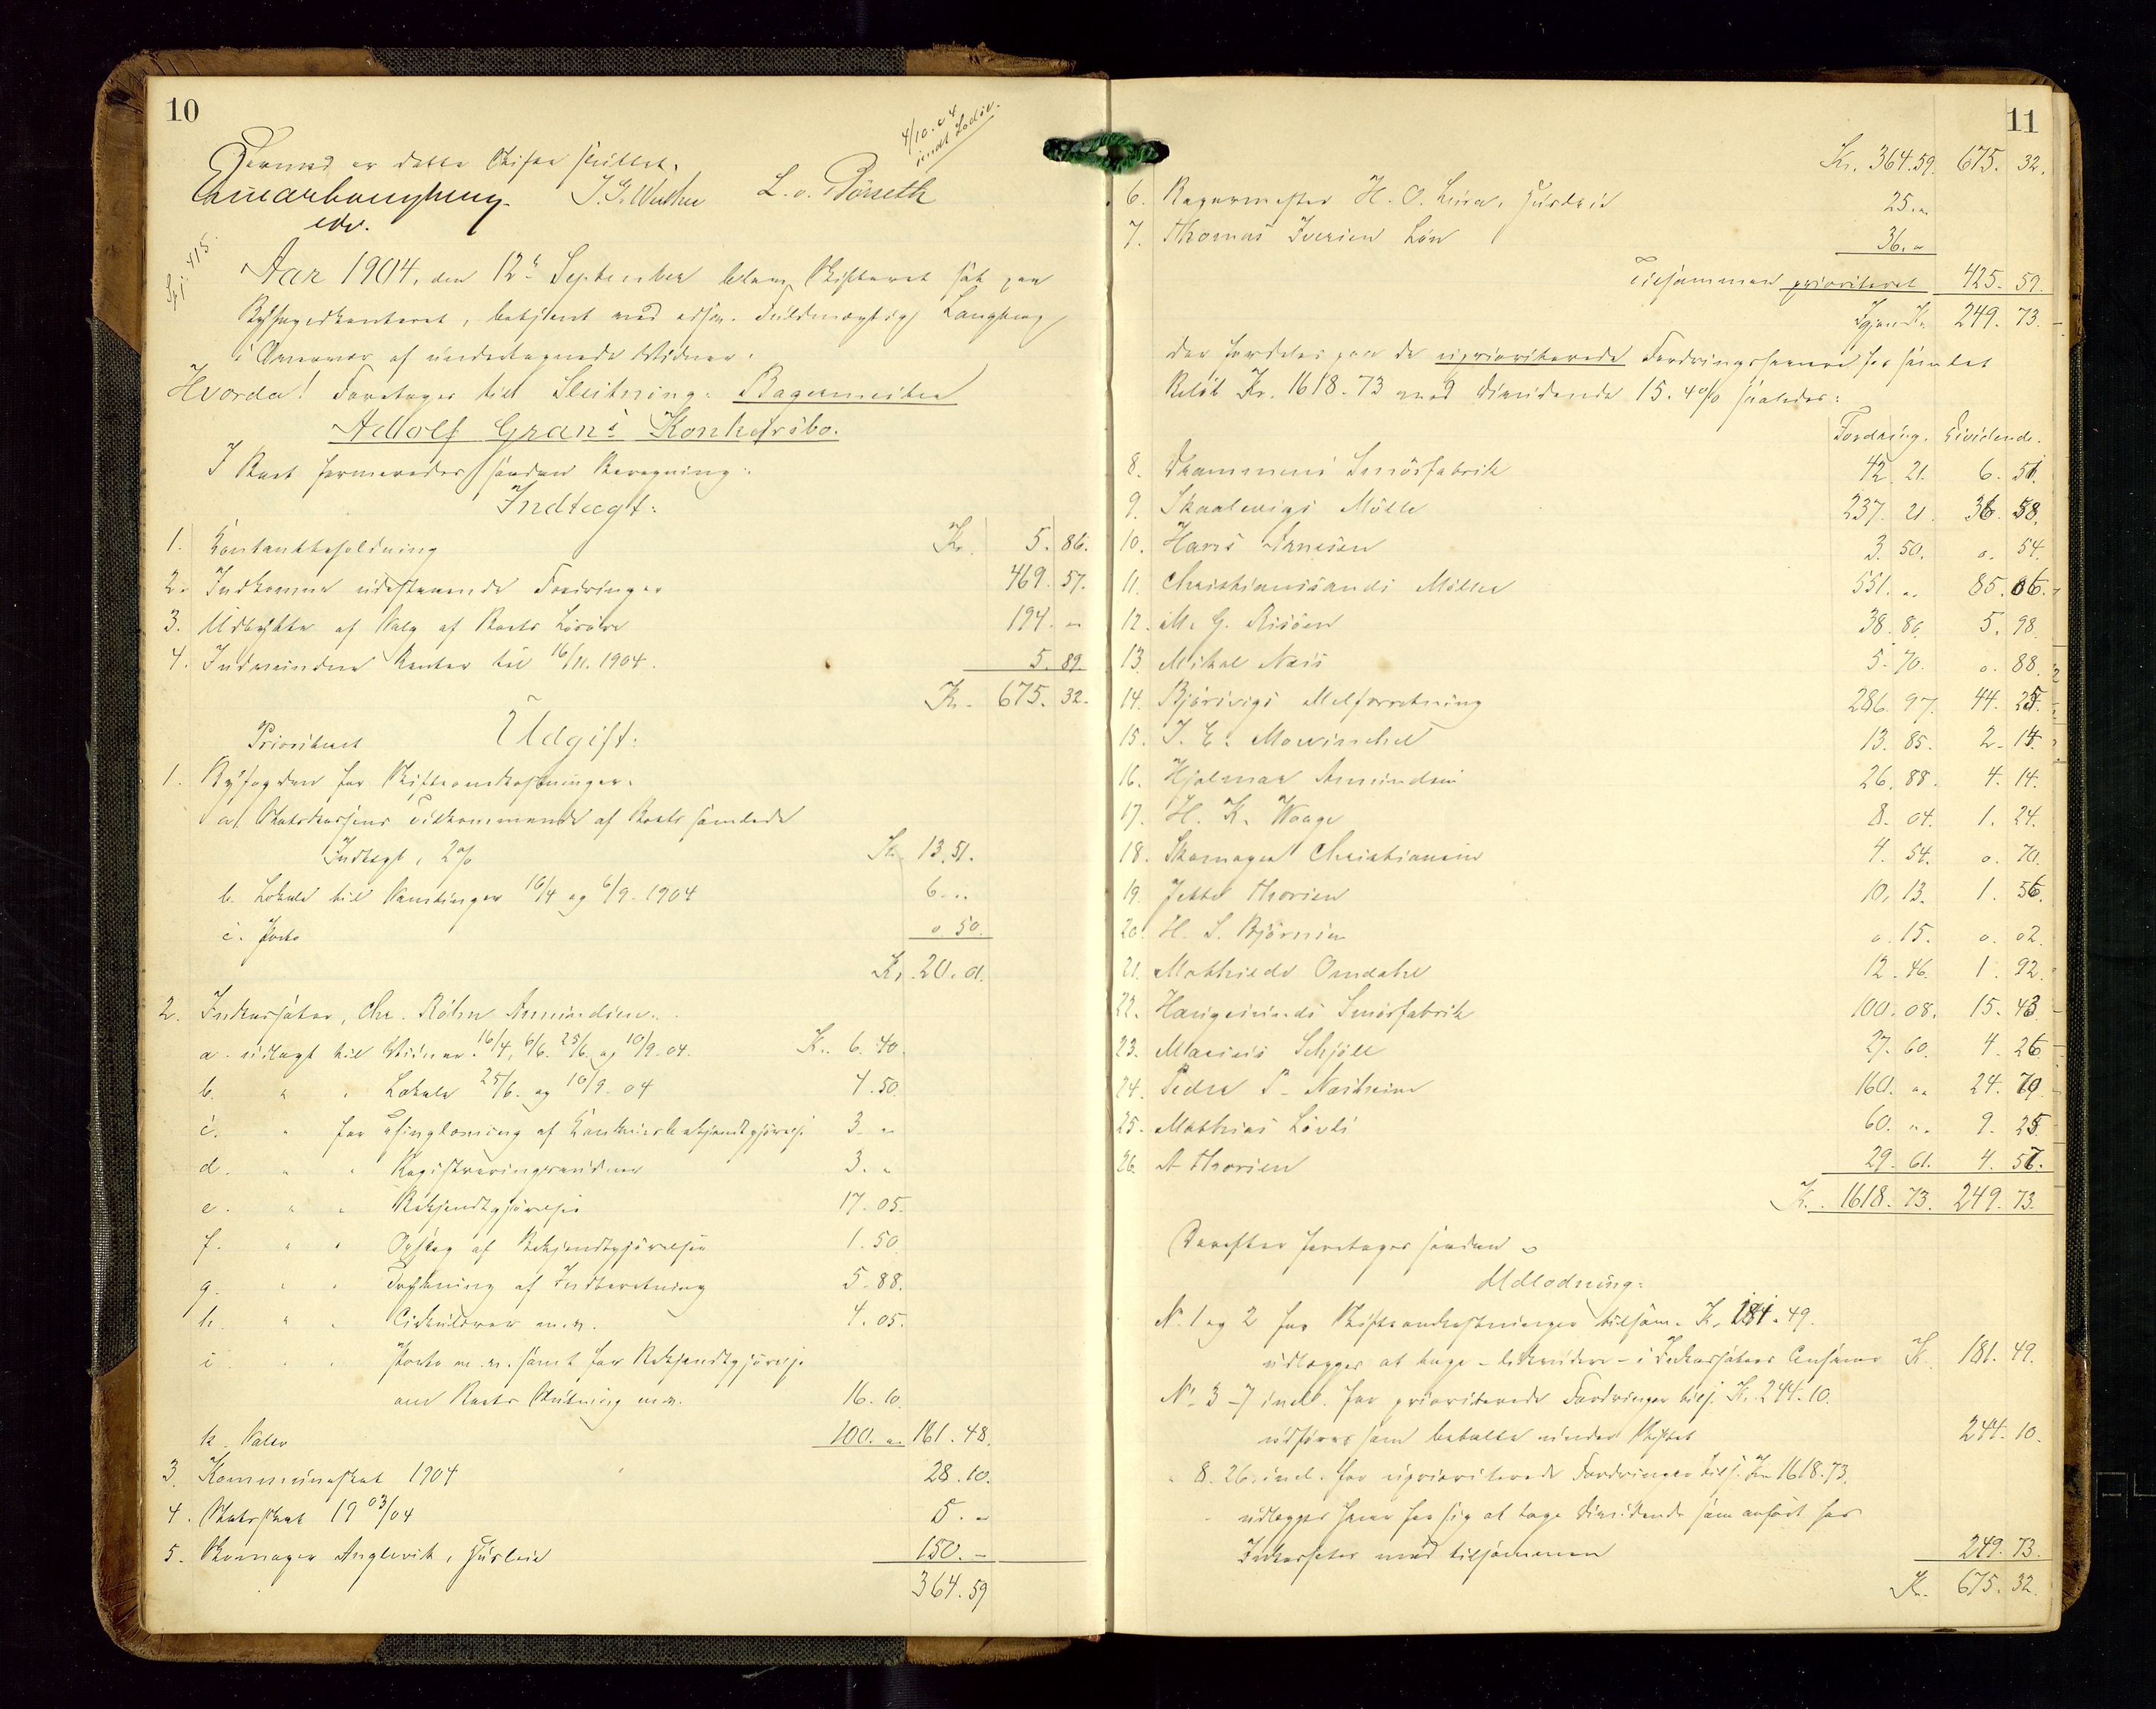 10
4/10.04
indt. Lodsv.
Hermed er dette Skifte sluttet.
Einar Langberg
edv.
J. G. Wathne L. v. Pörseth
Aar 1904, den 12te September blev Skifteret sat paa
Byfogedkontoret, betjent med edsv. Fuldmægtig Langberg
i Overvær af undertegnede Vidner.
Hvorda! Foretoges til Slutning: Bagermester
Adolf Gran's Konkursbo.
I Boet formeredes saadan Beregning:
Indtægt:
1. Kontantbeholdning Kr. 5. 86.
2. Indkomne udestaaende Fordringer 469. 57.
3. Udbytte af Salg af Boets Lösöre 194. "
4. Indvundne Renter til 16/11. 1904. 5. 89.
Kr. 675. 32.
Udgift:
Prioriteret
1. Byfogden for Skifteomkostninger.
a. Statskassens Tilkommende af Boets samlede
Indtægt, 2% Kr. 13. 51.
b. Lokale til Samlinger 16/4 og 6/9. 1904 6. "
c. Porto 0. 50.
Kr. 20. 01.
2. Inkassator, Chr. Röhn Amundsen.
a. udlagt til Vidner 16/4, 6/6. 25/6. og 10/9. 04. Kr. 6. 40.
b. " " Lokale 25/6. og 10/9. 04 4. 50
c. " for Thinglæsning af Konkursbekjendtgjörelse 3. "
d. " " Registreringsvidner 3. "
e. " " Bekjendtgjörelse 17. 05.
f. " " Opslag af Bekjendtgjörelsen 1. 50
g. " " Trykning af Indberetning 5. 88.
h. " " Cirkulærer m.v. 4. 05.
i " " Porto m.v. samt for Bekjendtgjörelse
om Boets Slutning m.v. 16. 10.
k. Salær 100. " 161. 48.
3. Kommuneskat 1904 28. 10.
4. Statsskat 19 03/04 5. "
5. Skomager Anglevik, Husleie 150. -
364. 59
11
Kr. 364. 59. 675. 32.
6. Bagermester H. O. Lura, Husleie 25. "
7. Thomas Iversen Lön 36. "
Tilsammen prioriteret 425. 59.
Igjen Kr. 249. 73.
der fordeles paa de uprioriterede Fordringshavere for samlet
Belöb Kr. 1618. 73 med Dividende 15. 4% saaledes:
Fordring. Dividende.
8. Drammens Smörfabrik 42. 21. 6. 51.
9. Skaalevigs Mölle 237. 21. 36. 58.
10. Hans Arnesen 3. 50. 0. 54.
11. Christianssands Möller 551. " 85. 06.
12. M. G. Risöen 38. 80. 5. 98.
13. Mikal Næss 5. 70. 0. 88.
14. Björsvigs Melforretning 286. 97. 44. 25.
15. J. E. Mowinckel 13. 85. 2. 14.
16. Hjalmar Amundsen 26. 88. 4. 14.
17. H. K. Waage 8. 04. 1. 24.
18. Skomager Christiansen 4. 54. 0. 70.
19. Jetta Thorsen 10. 13. 1. 56.
20. H. S. Björnsen 0. 15. 0. 02.
21. Mathilde Omdahl 12. 46. 1. 92.
22. Haugesunds Smörfabrik 100. 08. 15. 43.
23. Marius Schjöll 27. 60. 4. 26.
24. Peder P. Næsheim 160. " 24. 70
25. Mathias Lövli 60. " 9. 25.
26. A Thorsen 29. 61. 4. 57.
Kr. 1618. 73. 249. 73.
Derefter foretages saadan
Udlodning:
No 1 og 2 for Skifteomkostninger tilsam. Kr. 181. 49.
udlægges at tage - likvidere - i Inkassators Ansvar Kr. 181. 49.
No 3-7 incl. for prioriterede Fordringer tils. Kr. 244. 10.
udföres som betalte under Skiftet 244. 10.
" 8. 26. incl. for uprioriterede Fordringer tils. Kr. 1618. 73.
udlægges hver for sig at tage Dividende som anfört hos
Inkassator med tilsammen 249. 73.
Kr. 675. 32.